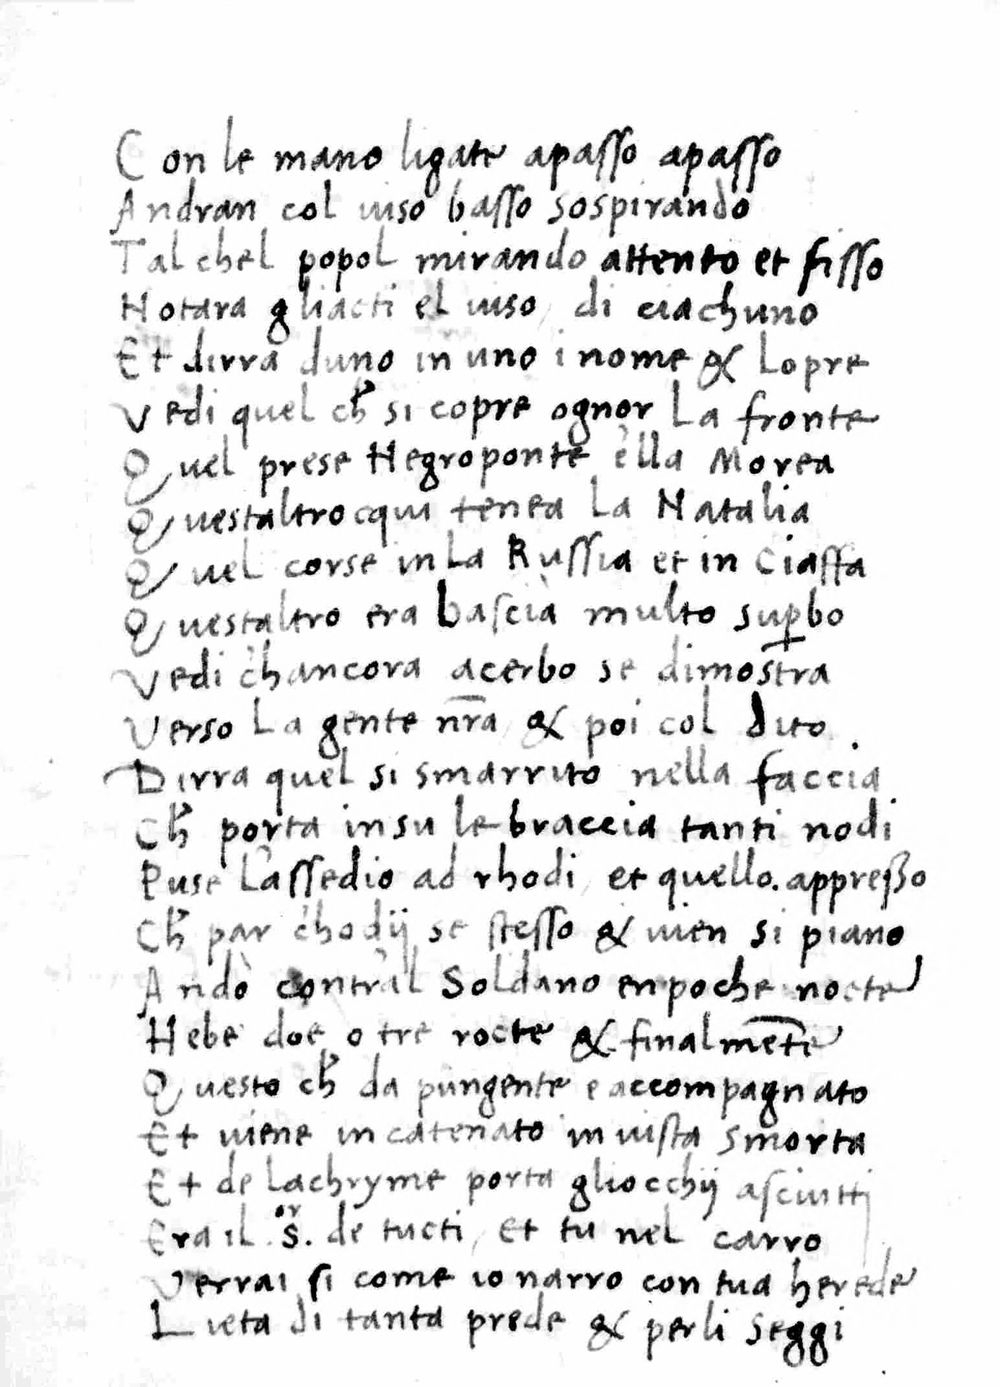 Con le mano ligate apasso apasso
Andran col uiso basso sospirando
Tal chel popol mirando attento et fisso
Notara gliacti el uiso, di ciachuno
Et dirra duno in uno i nome & lopre
Vedi quel ch̃ si copre ognor la fronte
Quel prese Negroponte ella Morea
Questaltro cqui tenea la Natalia
Quel corse in la Russia et in Ciaffa
Questaltro era bascià multo sup̱bo
Vedi chancora acerbo se dimostra
Verso la gente nr̃a & poi col dito
Dirra quel si smarrito nella faccia
Ch̃ porta insu le braccia tanti nodi
Puse lassedio ad rhodi, et quello. appresso
Ch̃ par chodij se stesso & uien si piano
Andò contral Soldano en poche nocte
Hebe doe o tre rocte & finalmẽte
Questo ch̃ da pungente e accompagnato
Et uiene incatenato in uista smorta
Et de lachryme porta gliocchij asciutti
Era il .S.or de tucti, et tu nel carro
Verrai si come io narro con tua herede
Lieta di tanta prede & perli seggi